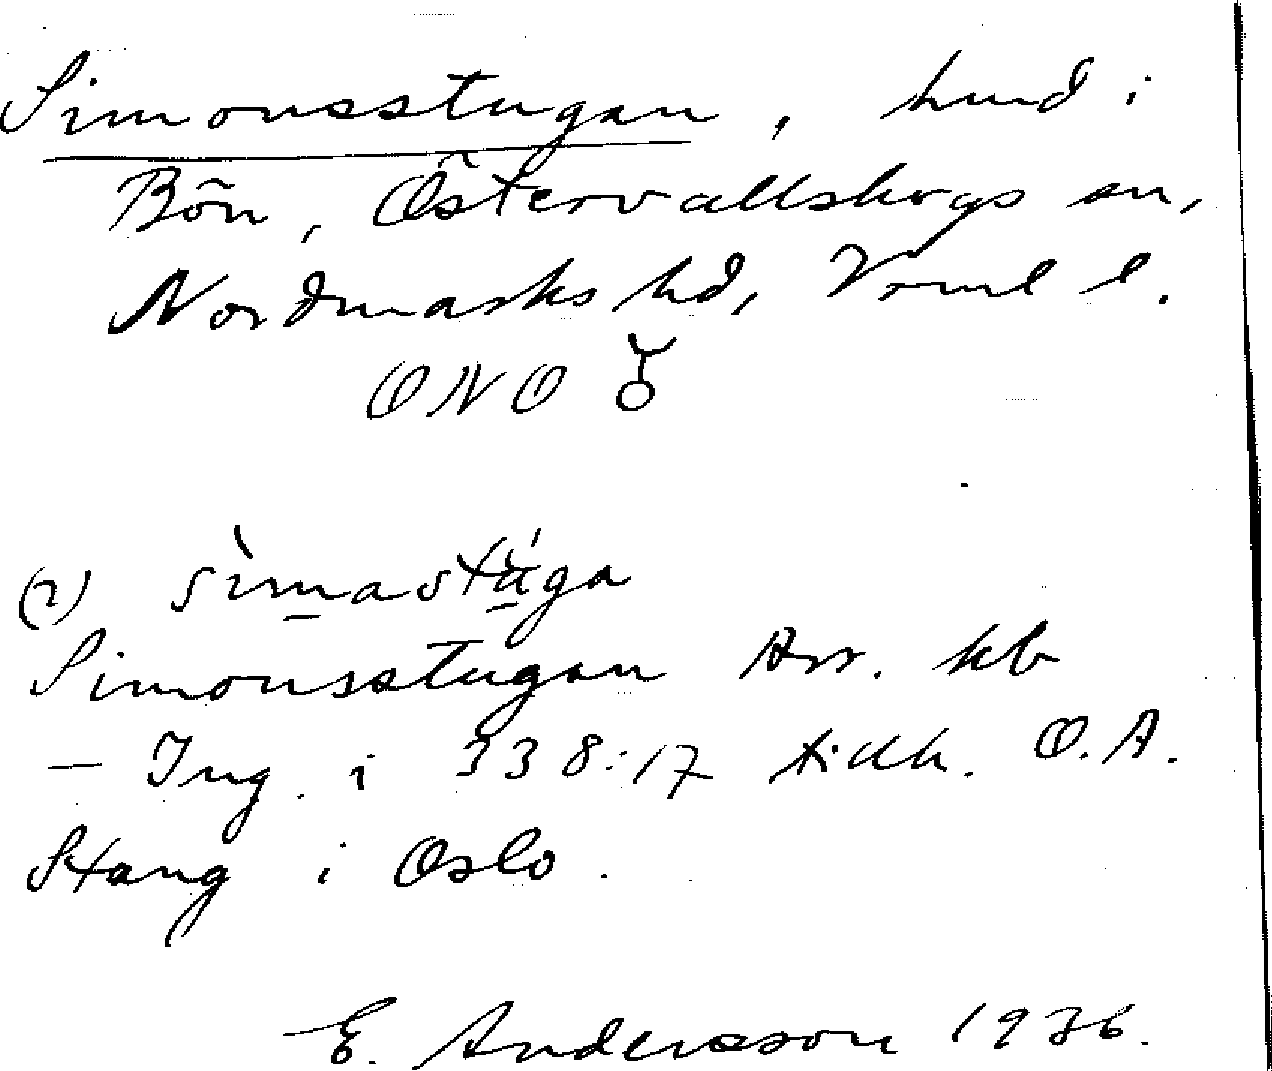 Simonsstugan, hmd i
Bön, Östervallskogs sn,
Nordmarks hd, Vrml l.
ONO ♉
(2) sìmastǘga
Simonsstugan Arr. kb
– Ing. i 338:17 tidh. O.A.
Stang i Oslo.
E. Andersson 1936.